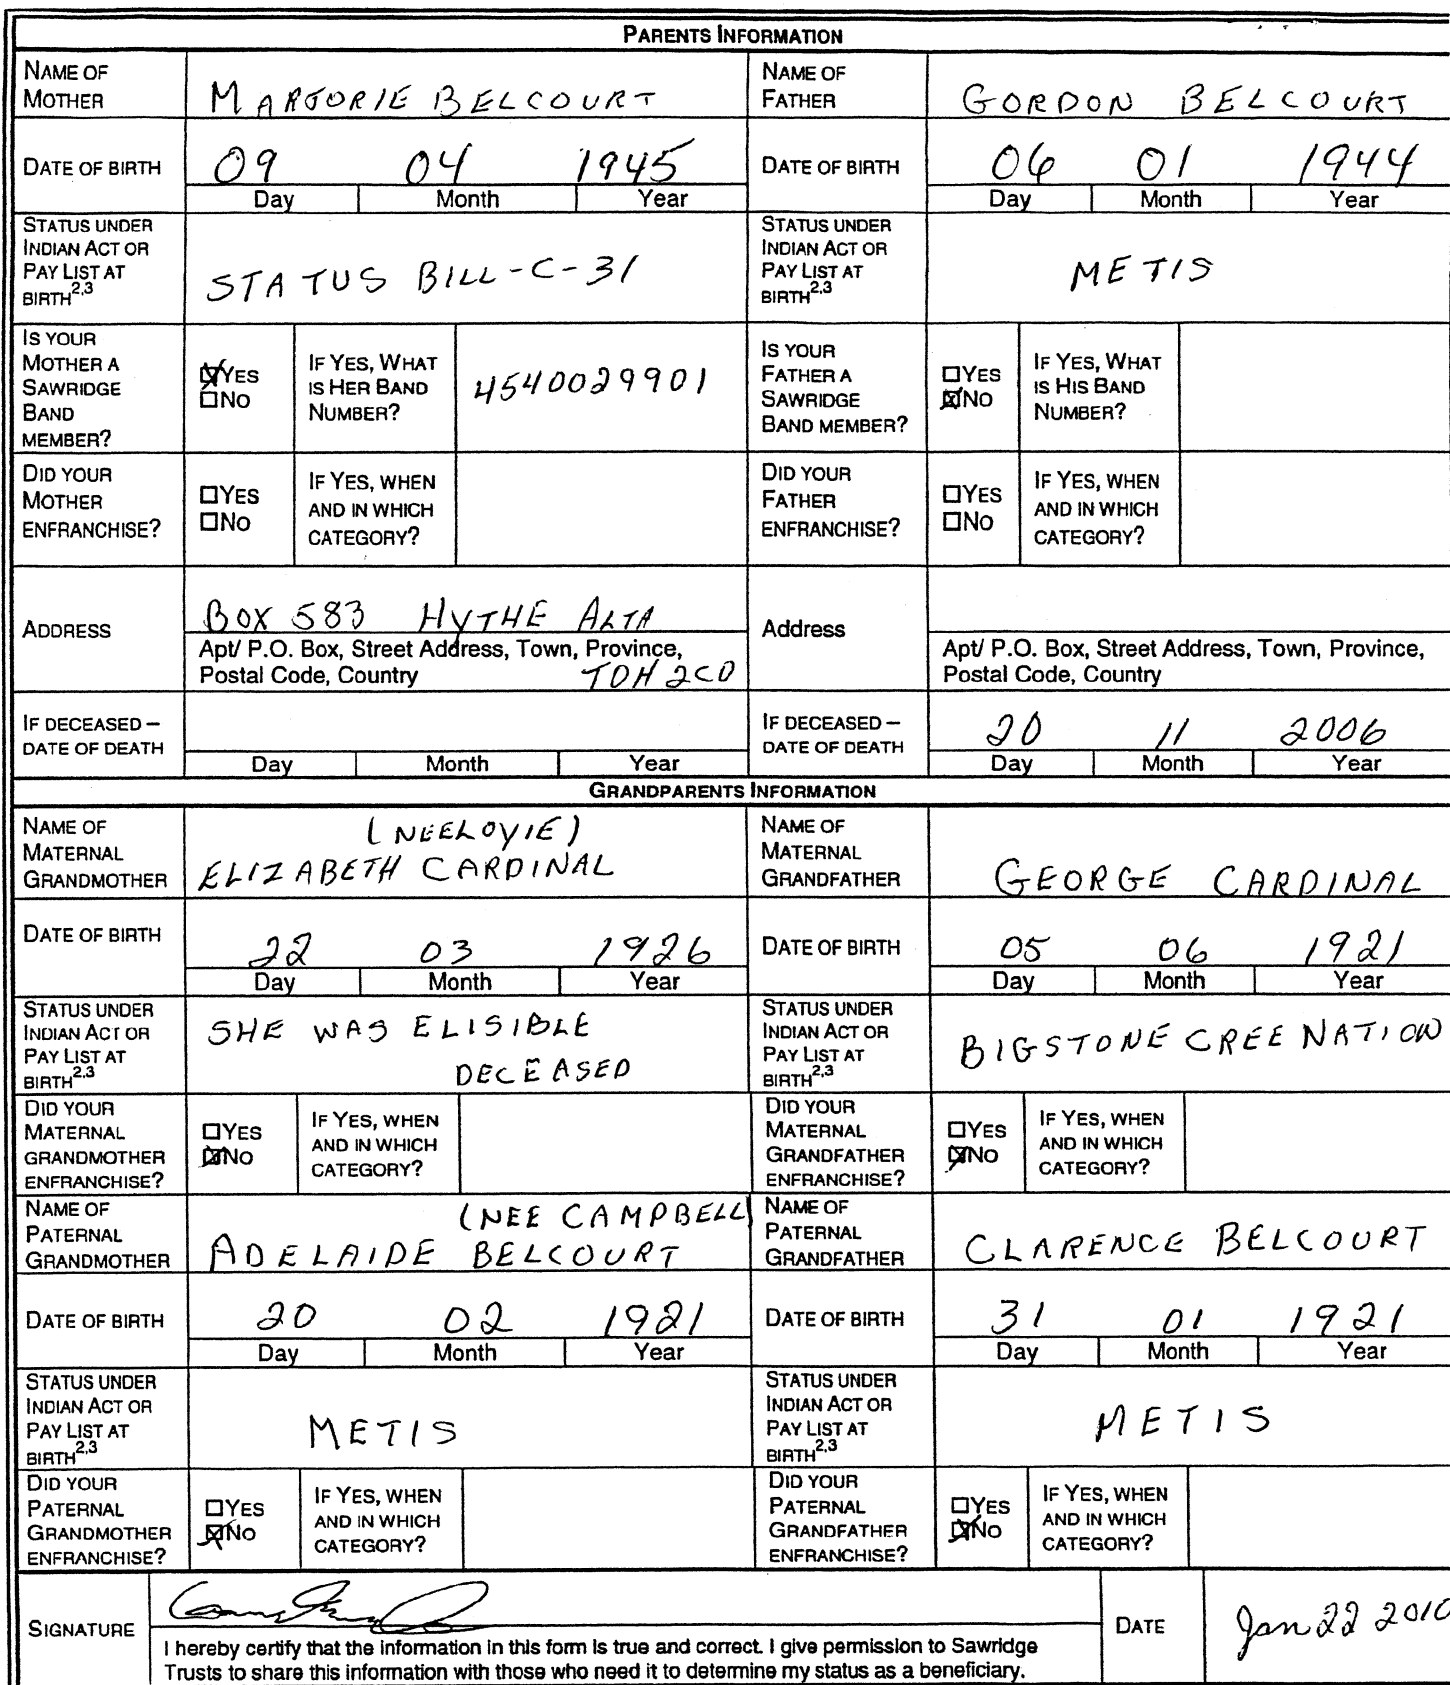 PARENTS INFORMATION
NAME OF MOTHER MARJORIE BELCOURT NAME OF FATHER GORDON BELCOURT
DATE OF BIRTH 09 04 1945 DATE OF BIRTH 06 01 1944
Day Month Year Day Month Year
STATUS UNDER INDIAN ACT OR PAY LIST AT BIRTH2,3 STATUS BILL-C-31 STATUS UNDER INDIAN ACT OR PAY LIST AT BIRTH2,3 METIS
IS YOUR MOTHER A SAWRIDGE BAND MEMBER? ☒YES ☐NO IF YES, WHAT IS HER BAND NUMBER? 4540029901 IS YOUR FATHER A SAWRIDGE BAND MEMBER? ☐YES ☒NO IF YES, WHAT IS HIS BAND NUMBER?
DID YOUR MOTHER ENFRANCHISE? ☐YES ☐NO IF YES, WHEN AND IN WHICH CATEGORY? DID YOUR FATHER ENFRANCHISE? ☐YES ☐NO IF YES, WHEN AND IN WHICH CATEGORY?
ADDRESS BOX 583 HYTHE ALTA Address
Apt/ P.O. Box, Street Address, Town, Province, Apt/ P.O. Box, Street Address, Town, Province,
Postal Code, Country T0H 2C0 Postal Code, Country
IF DECEASED – DATE OF DEATH IF DECEASED – DATE OF DEATH 20 11 2006
Day Month Year Day Month Year
GRANDPARENTS INFORMATION
NAME OF MATERNAL GRANDMOTHER (NEELOYIE) ELIZABETH CARDINAL NAME OF MATERNAL GRANDFATHER GEORGE CARDINAL
DATE OF BIRTH 22 03 1926 DATE OF BIRTH 05 06 1921
Day Month Year Day Month Year
STATUS UNDER INDIAN ACT OR PAY LIST AT BIRTH2,3 SHE WAS ELISIBLE DECEASED STATUS UNDER INDIAN ACT OR PAY LIST AT BIRTH2,3 BIGSTONE CREE NATION
DID YOUR MATERNAL GRANDMOTHER ENFRANCHISE? ☐YES ☒NO IF YES, WHEN AND IN WHICH CATEGORY? DID YOUR MATERNAL GRANDFATHER ENFRANCHISE? ☐YES ☒NO IF YES, WHEN AND IN WHICH CATEGORY?
NAME OF PATERNAL GRANDMOTHER (NEE CAMPBELL) ADELAIDE BELCOURT NAME OF PATERNAL GRANDFATHER CLARENCE BELCOURT
DATE OF BIRTH 20 02 1921 DATE OF BIRTH 31 01 1921
Day Month Year Day Month Year
STATUS UNDER INDIAN ACT OR PAY LIST AT BIRTH2,3 METIS STATUS UNDER INDIAN ACT OR PAY LIST AT BIRTH2,3 METIS
DID YOUR PATERNAL GRANDMOTHER ENFRANCHISE? ☐YES ☒NO IF YES, WHEN AND IN WHICH CATEGORY? DID YOUR PATERNAL GRANDFATHER ENFRANCHISE? ☐YES ☒NO IF YES, WHEN AND IN WHICH CATEGORY?
SIGNATURE DATE Jan 22 2010
I hereby certify that the information in this form is true and correct. I give permission to Sawridge
Trusts to share this information with those who need it to determine my status as a beneficiary.